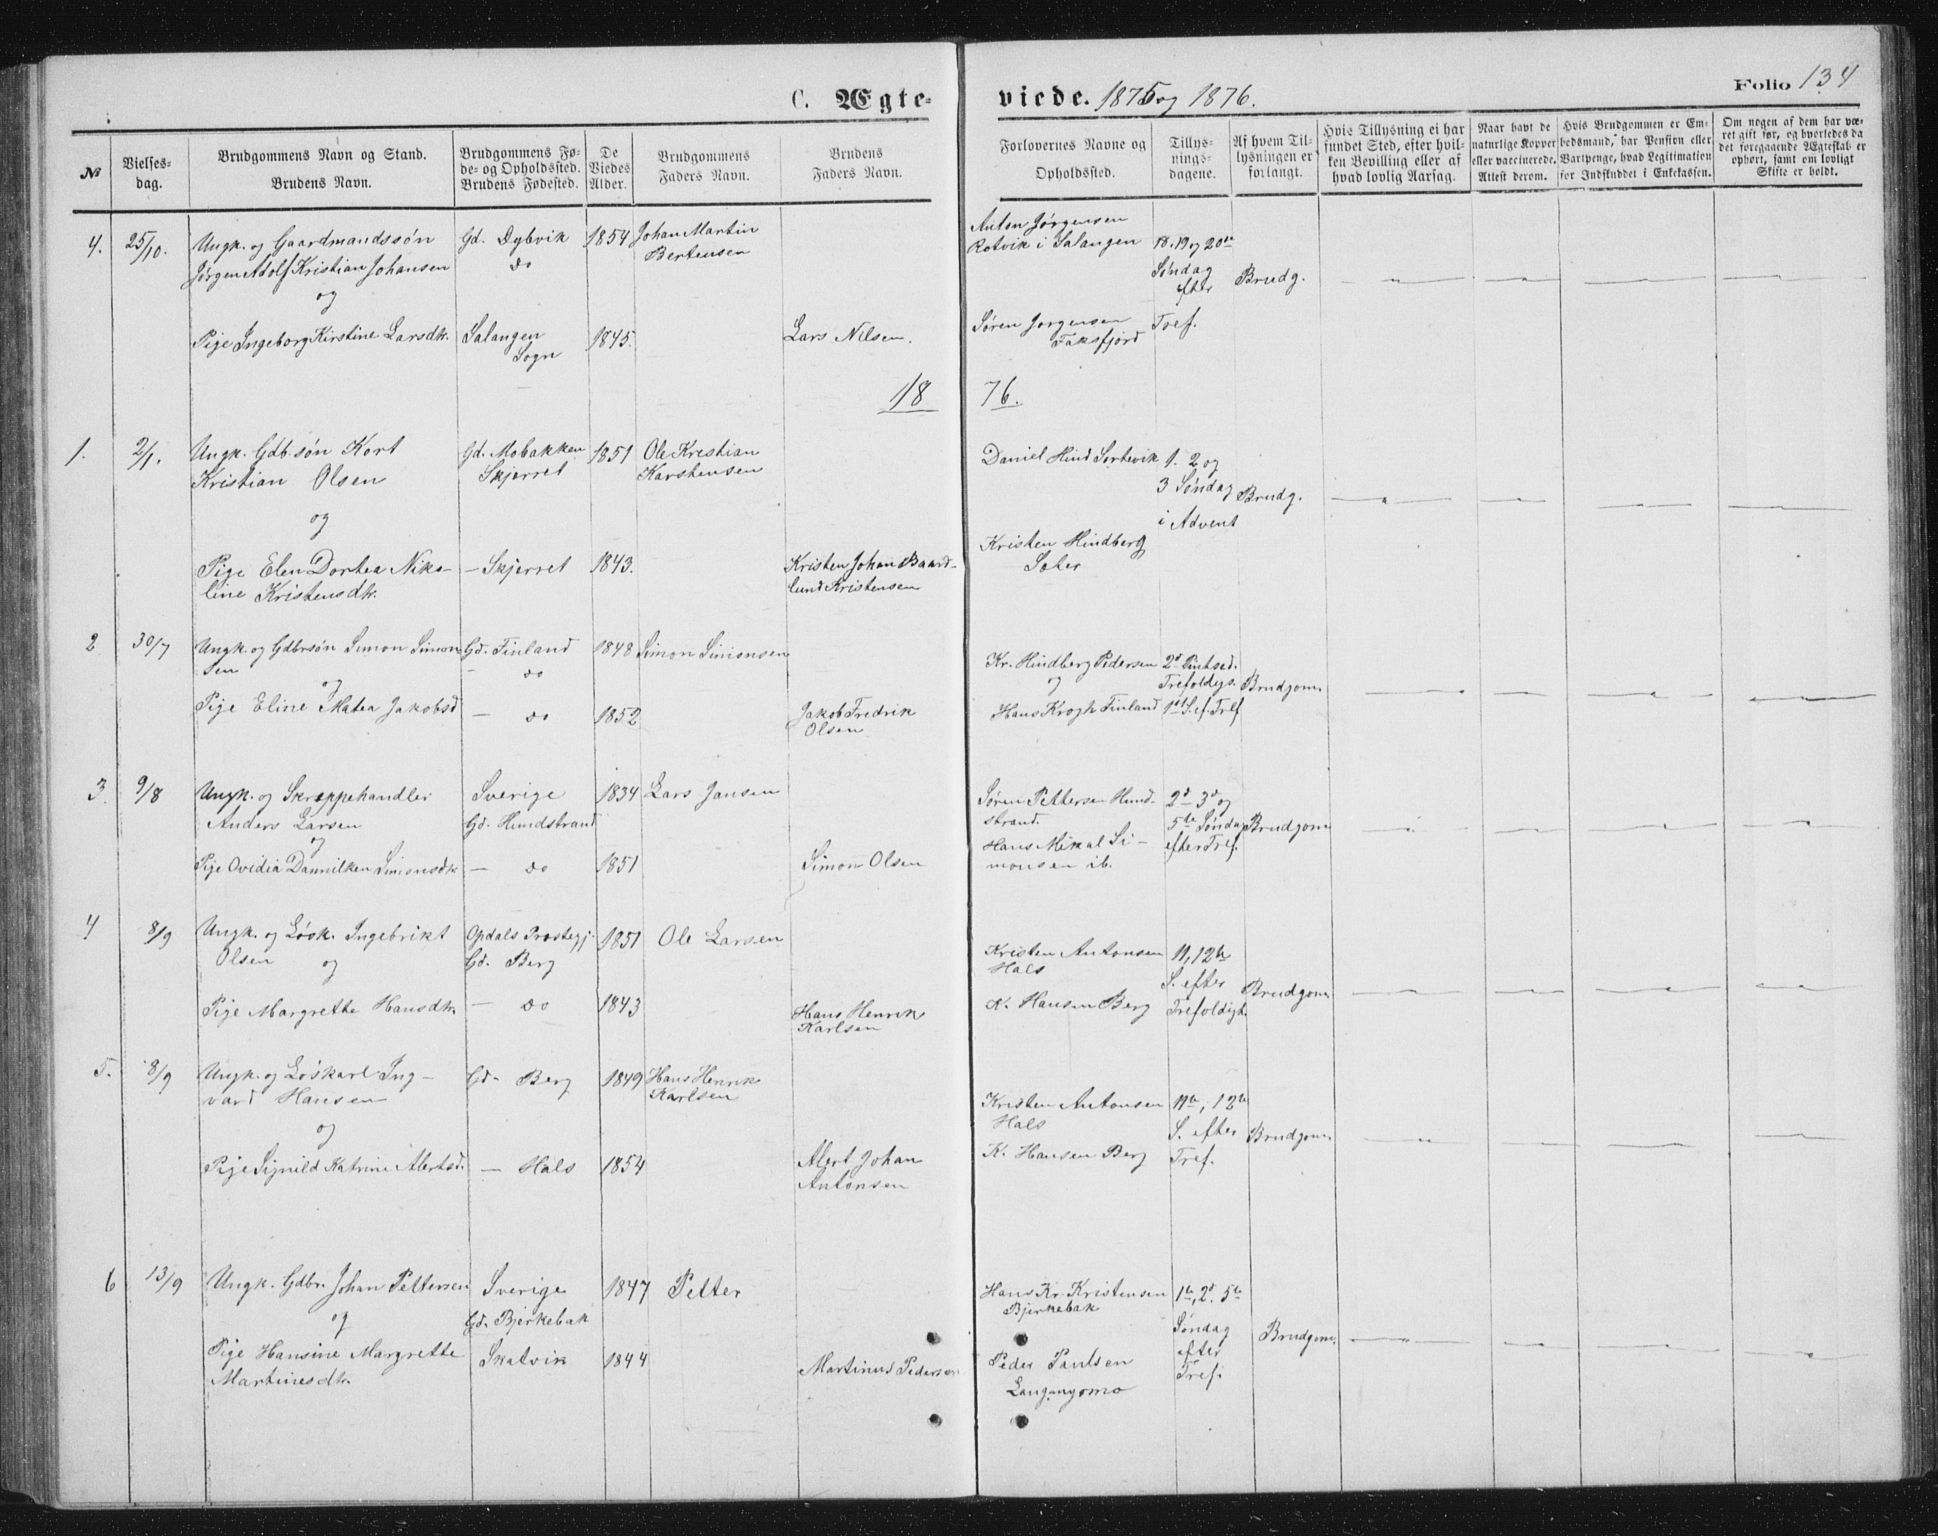 C. Ægte-
viede. 1875 og 1876.
Folio 134
No
Vielses-
dag.
Brudgommens Navn og Stand.
Brudens Navn.
Brudgommens Fø-
de- og Opholdssted.
Brudens Fødested.
De
Viedes
Alder.
Brudgommens
Faders Navn.
Brudens
Faders Navn.
Forlovernes Navne og
Opholdssted.
Tillys-
nings-
dagene.
Af hvem Til-
lysningen er
forlangt.
Hvis Tillysning ei har
fundet Sted, efter hvil-
ken Bevilling eller af
hvad lovlig Aarsag.
Naar havt de
naturlige Kopper
eller vaccinerede.
Attest derom.
Hvis Brudgommen er Em-
bedsmand, har Pension eller
Vartpenge, hvad Legitimation
for Indskuddet i Enkekassen.
Om nogen af dem har væ-
ret gift før, og hvorledes da
det foregaaende Ægteskab er
ophørt, samt om lovligt
Skifte er holdt.
4. 25/10. Ungk. og Gaardmandssøn Gd. Dybvik 1854 Johan Martin Anton Jørgensen
Jørgen Adolf Kristian Johansen do Bertensen Rotvik i Salangen 18. 19 og 20de
og Søndag
efter Brudg.
Pige Ingeborg Kirstine Larsdt. Salangen 1845. Lars Nilsen. Søren Jørgensen Tref.
Sogn Faksfjord
1876.
1. 2/1. Ungk. Gdb.søn Kort Gd. Mobakken 1851 Ole Kristian Daniel Hind Sørtevik 1. 2 og
Kristian Olsen Skjerret Karstensen 3 Søndag Brudg.
og i Advent
Kristen Hindberg
Pige Elen Dortea Niko- - Skjerret 1843. Kristen Johan Baard- Soter
line Kristensdt. lund Kristensen
2 30/7 Ungk. og Gdbrsøn Simon Simon- Gd. Finland 1848 Simon Simonsen Kr. Hindberg Pedersen 2d Pintsed.
sen - do og Trefoldigs. Brudgom.
og
Pige Eline Matea Jakobsd - do 1852 Jakob Fredrik Hans Krogh Finland 1ste S. ef. Tref
Olsen
3. 9/8 Ungk. og Skreppehandler Sverige 1834 Lars Jansen Søren Pettersen Hund- 2d 3d og
Anders Larsen Gd. Hundstrand strand. 5te Søndag Brudgom
og Hans Mikal Si- efter Tref.
Pige Ovidia Dannilken Simonsdt. - do 1851 Simon Olsen monsen ib.
4 8/9 Ungk. og Løsk. Ingebrikt Opdals Prestegj. 1851 Ole Larsen Kristen Antonsen 11, 12te
Olsen og Gd. Berg Hals S. efter Brudgom.
Pige Margrette Hansdt. - do 1843 Hans Henrik K. Hansen Berg Trefoldigh.
Karlsen
5. 8/9 Ungk. og Løskarl Ing- Gd. Berg 1849 Hans Henrik Kristen Antonsen 11te, 12te
vard Hansen Karlsen Hals S. efter Brudgom.
og
Pige Signild Katrine Alertsd. - Hals 1854 Alert Johan K. Hansen Berg Tref.
Antonsen
6 13/9 Ungk. Gdbr. Johan Pettersen Sverige 1847 Petter Hans Kr. Kristensen 1te, 2d. 5te
og Gd. Bjerkebak Bjerkebak Søndag Brudgom.
Pige Hansine Margrette Skatvik 1844 Martinus Pedersen Peder Paulsen efter
Martinesdt. Langangsmo Tref.